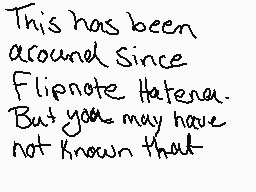 This has been
around since
Flipnote Hatena.
But you may have
not known that